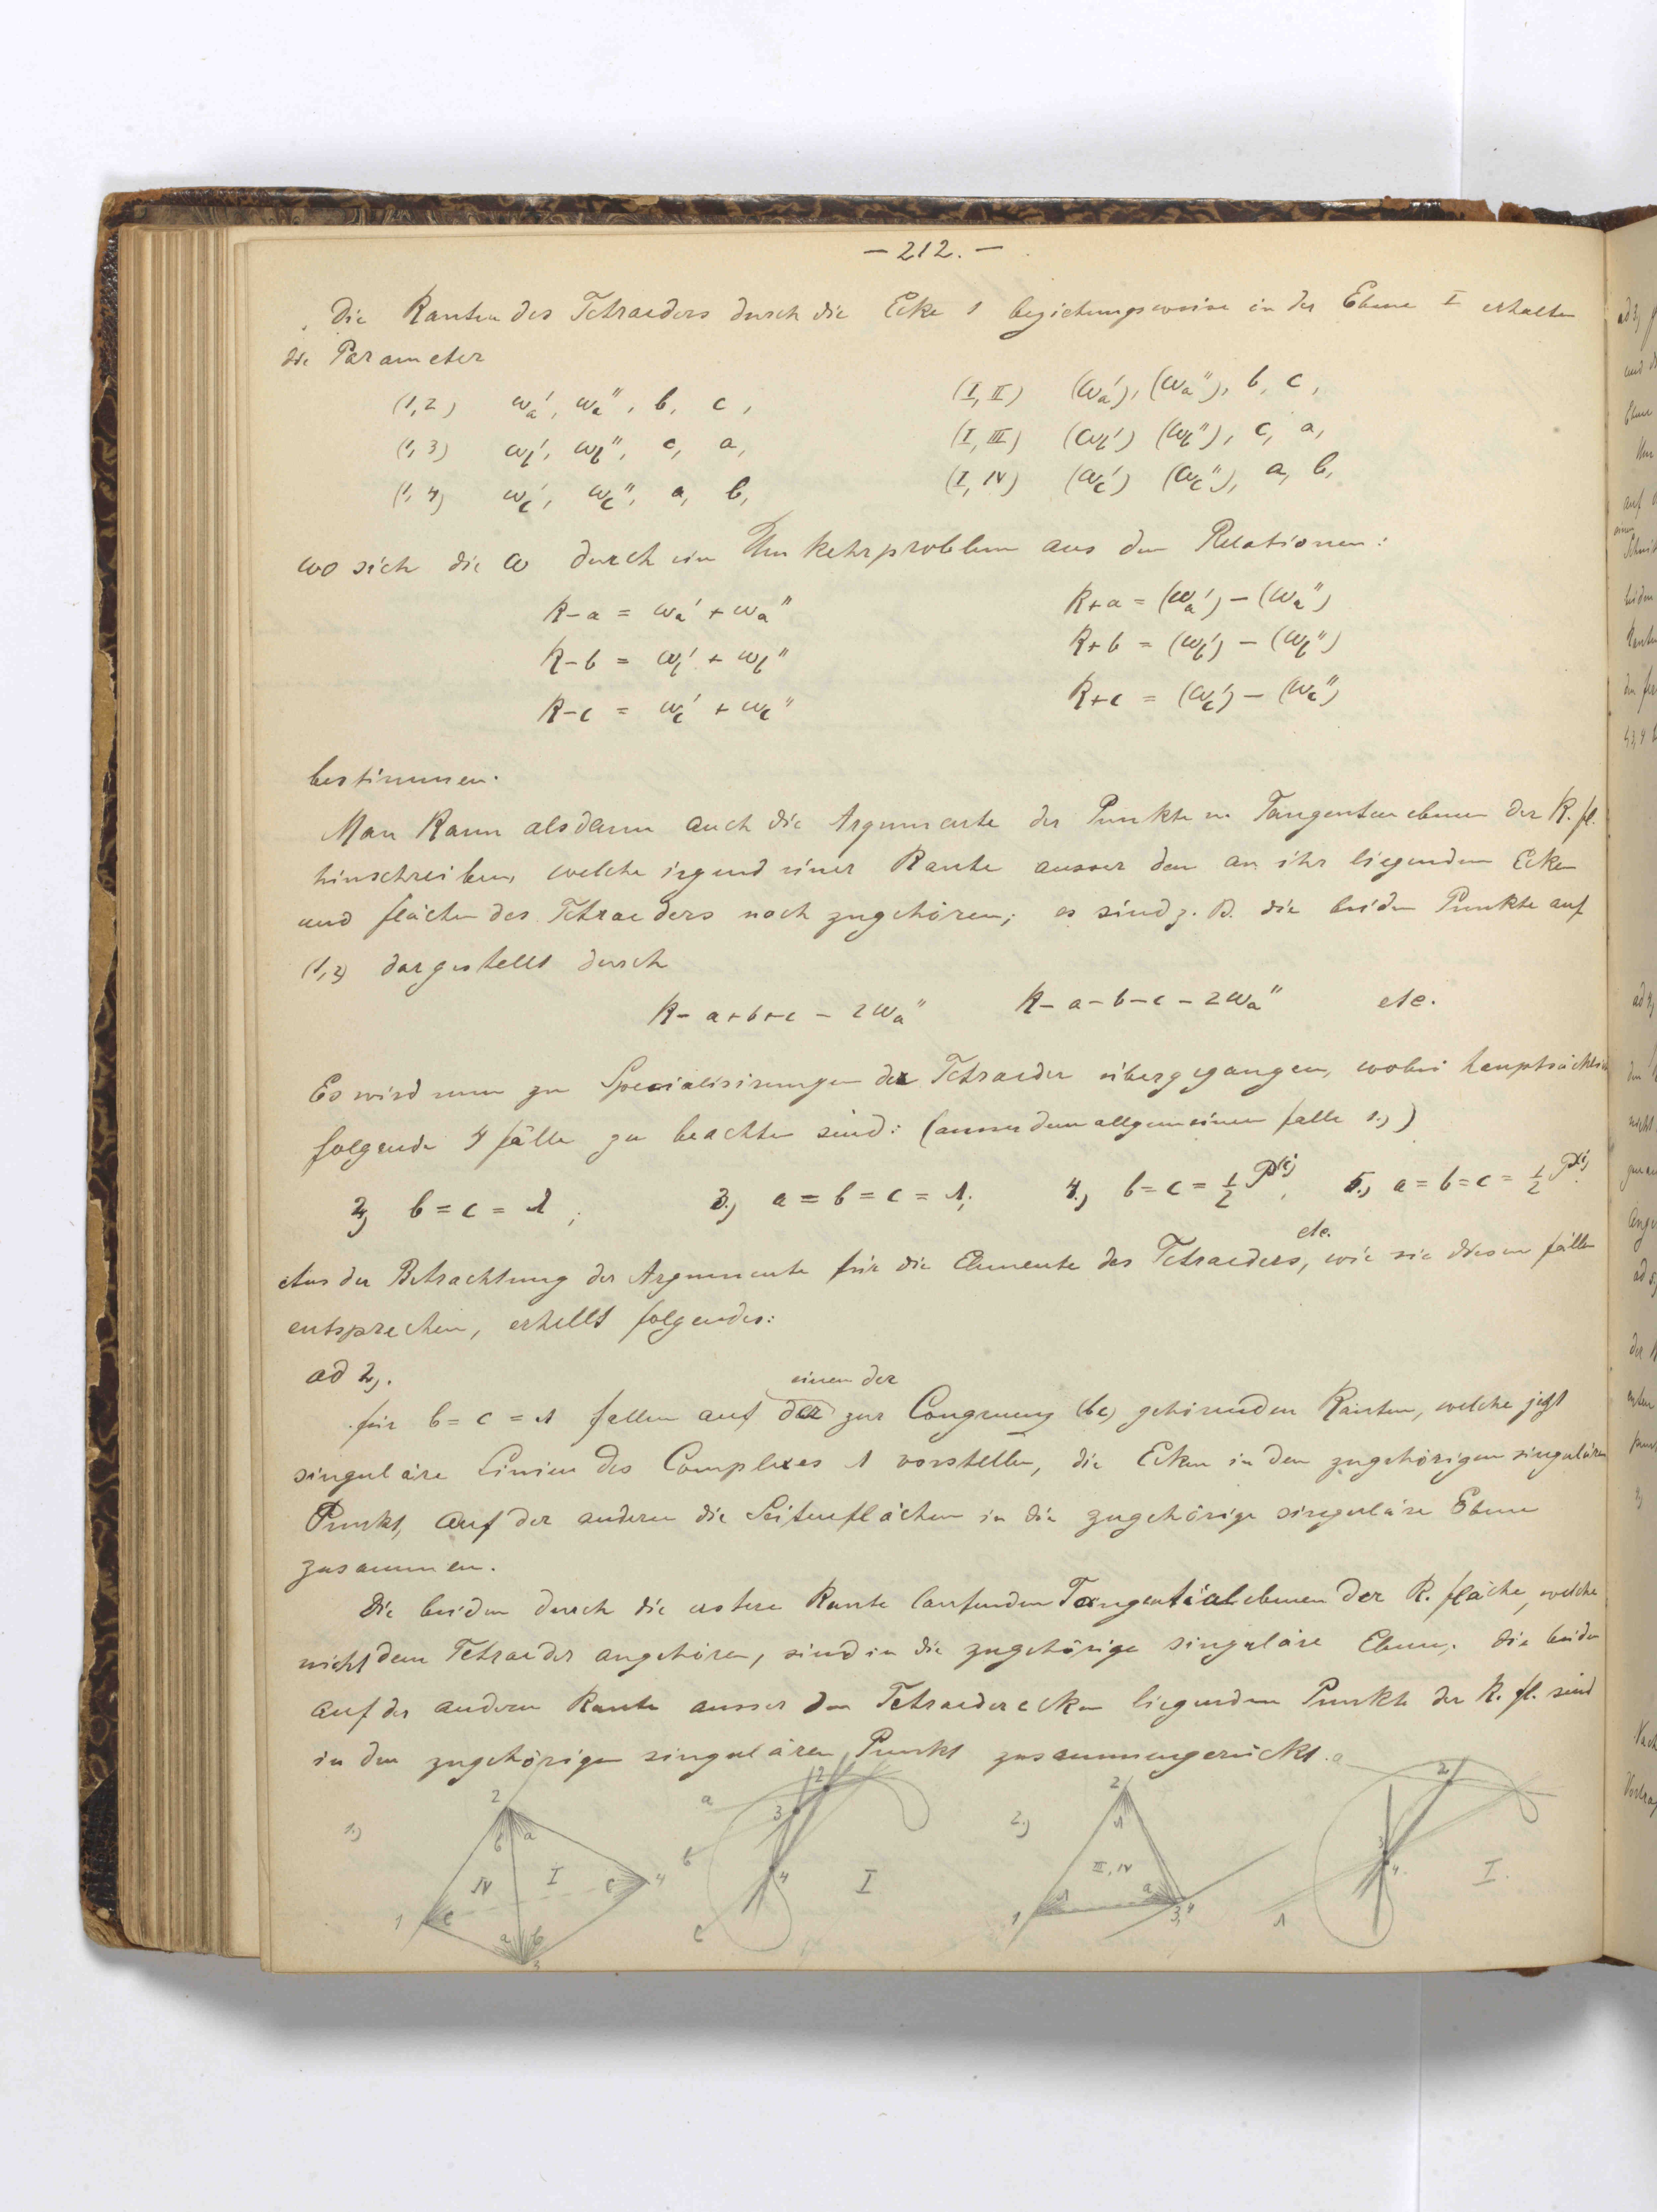 — 212. —
Die Kanten des Tetraeders durch die Ecke 1 beziehungsweise in der Ebene I erhalten
die Parameter
(1,2) ωa', ωa'', b, c, (I, II) (ωa'), (ωa''), b, c,
(1,3) ωb', ωb'', c, a, (I, III) (ωb') (ωb''), c, a,
(1,4) ωc', ωc'', a, b, (I, IV) (ωc') (ωc''), a, b,
wo sich die ω durch ein Umkehrproblem aus den Relationen:
k-a = ωa' + ωa'' k+a = (ωa') - (ωa'')
k-b = ωb' + ωb'' k+b = (ωb') - (ωb'')
k-c = ωc' + ωc'' k+c = (ωc') - (ωc'')
bestimmen.
Man kann alsdann auch die Argumente der Punkte u. Tangentenebenen der K. fl.
hinschreiben, welche irgend einer Kante ausser den an ihr liegenden Ecken
und flächen des Tetraeders noch zugehören; es sind z. B. die beiden Punkte auf
(1,2) dargestellt durch
k-a+b+c - 2ωa'' k-a-b-c - 2ωa'' etc.
Es wird nun zu Specialisirungen der Tetraeder übergegangen, wobei hauptsächlich
folgende 4 fälle zu beachten sind: (ausser dem allgemeinen falle 1.))
2.) b = c = λ; 3.) a = b = c = λ; 4.) b = c = ½ P(i); 5.) a = b = c = ½ P(i).
etc.
Aus der Betrachtung der Argumente für die Elemente des Tetraeders, wie sie diesen fällen
entsprechen, erhellt folgendes:
ad 2.).
einen der
für b = c = λ fallen auf der zur Congruenz (bc) gehörenden Kanten, welche jetzt
singuläre Linien des Complexes λ vorstellen, die Ecken in den zugehörigen singulären
Punkt, auf der anderen die Seitenflächen in die zugehörige singuläre Ebene
zusammen.
Die beiden durch die erstere Kante laufenden Tangentialebenen der K. fläche, welche
nicht dem Tetraeder angehören, sind in die zugehörige singuläre Ebene; die beiden
auf der anderen Kante ausser den Tetraederecken liegenden Punkte der K. fl. sind
in den zugehörigen singulären Punkt zusammengerückt.
1.) 2 b a IV I c 4 1 c a b 3
a 2 3 b 4 I c
2.) 2 λ III, IV 1 λ a 3,4
a 2 3 4. I. λ